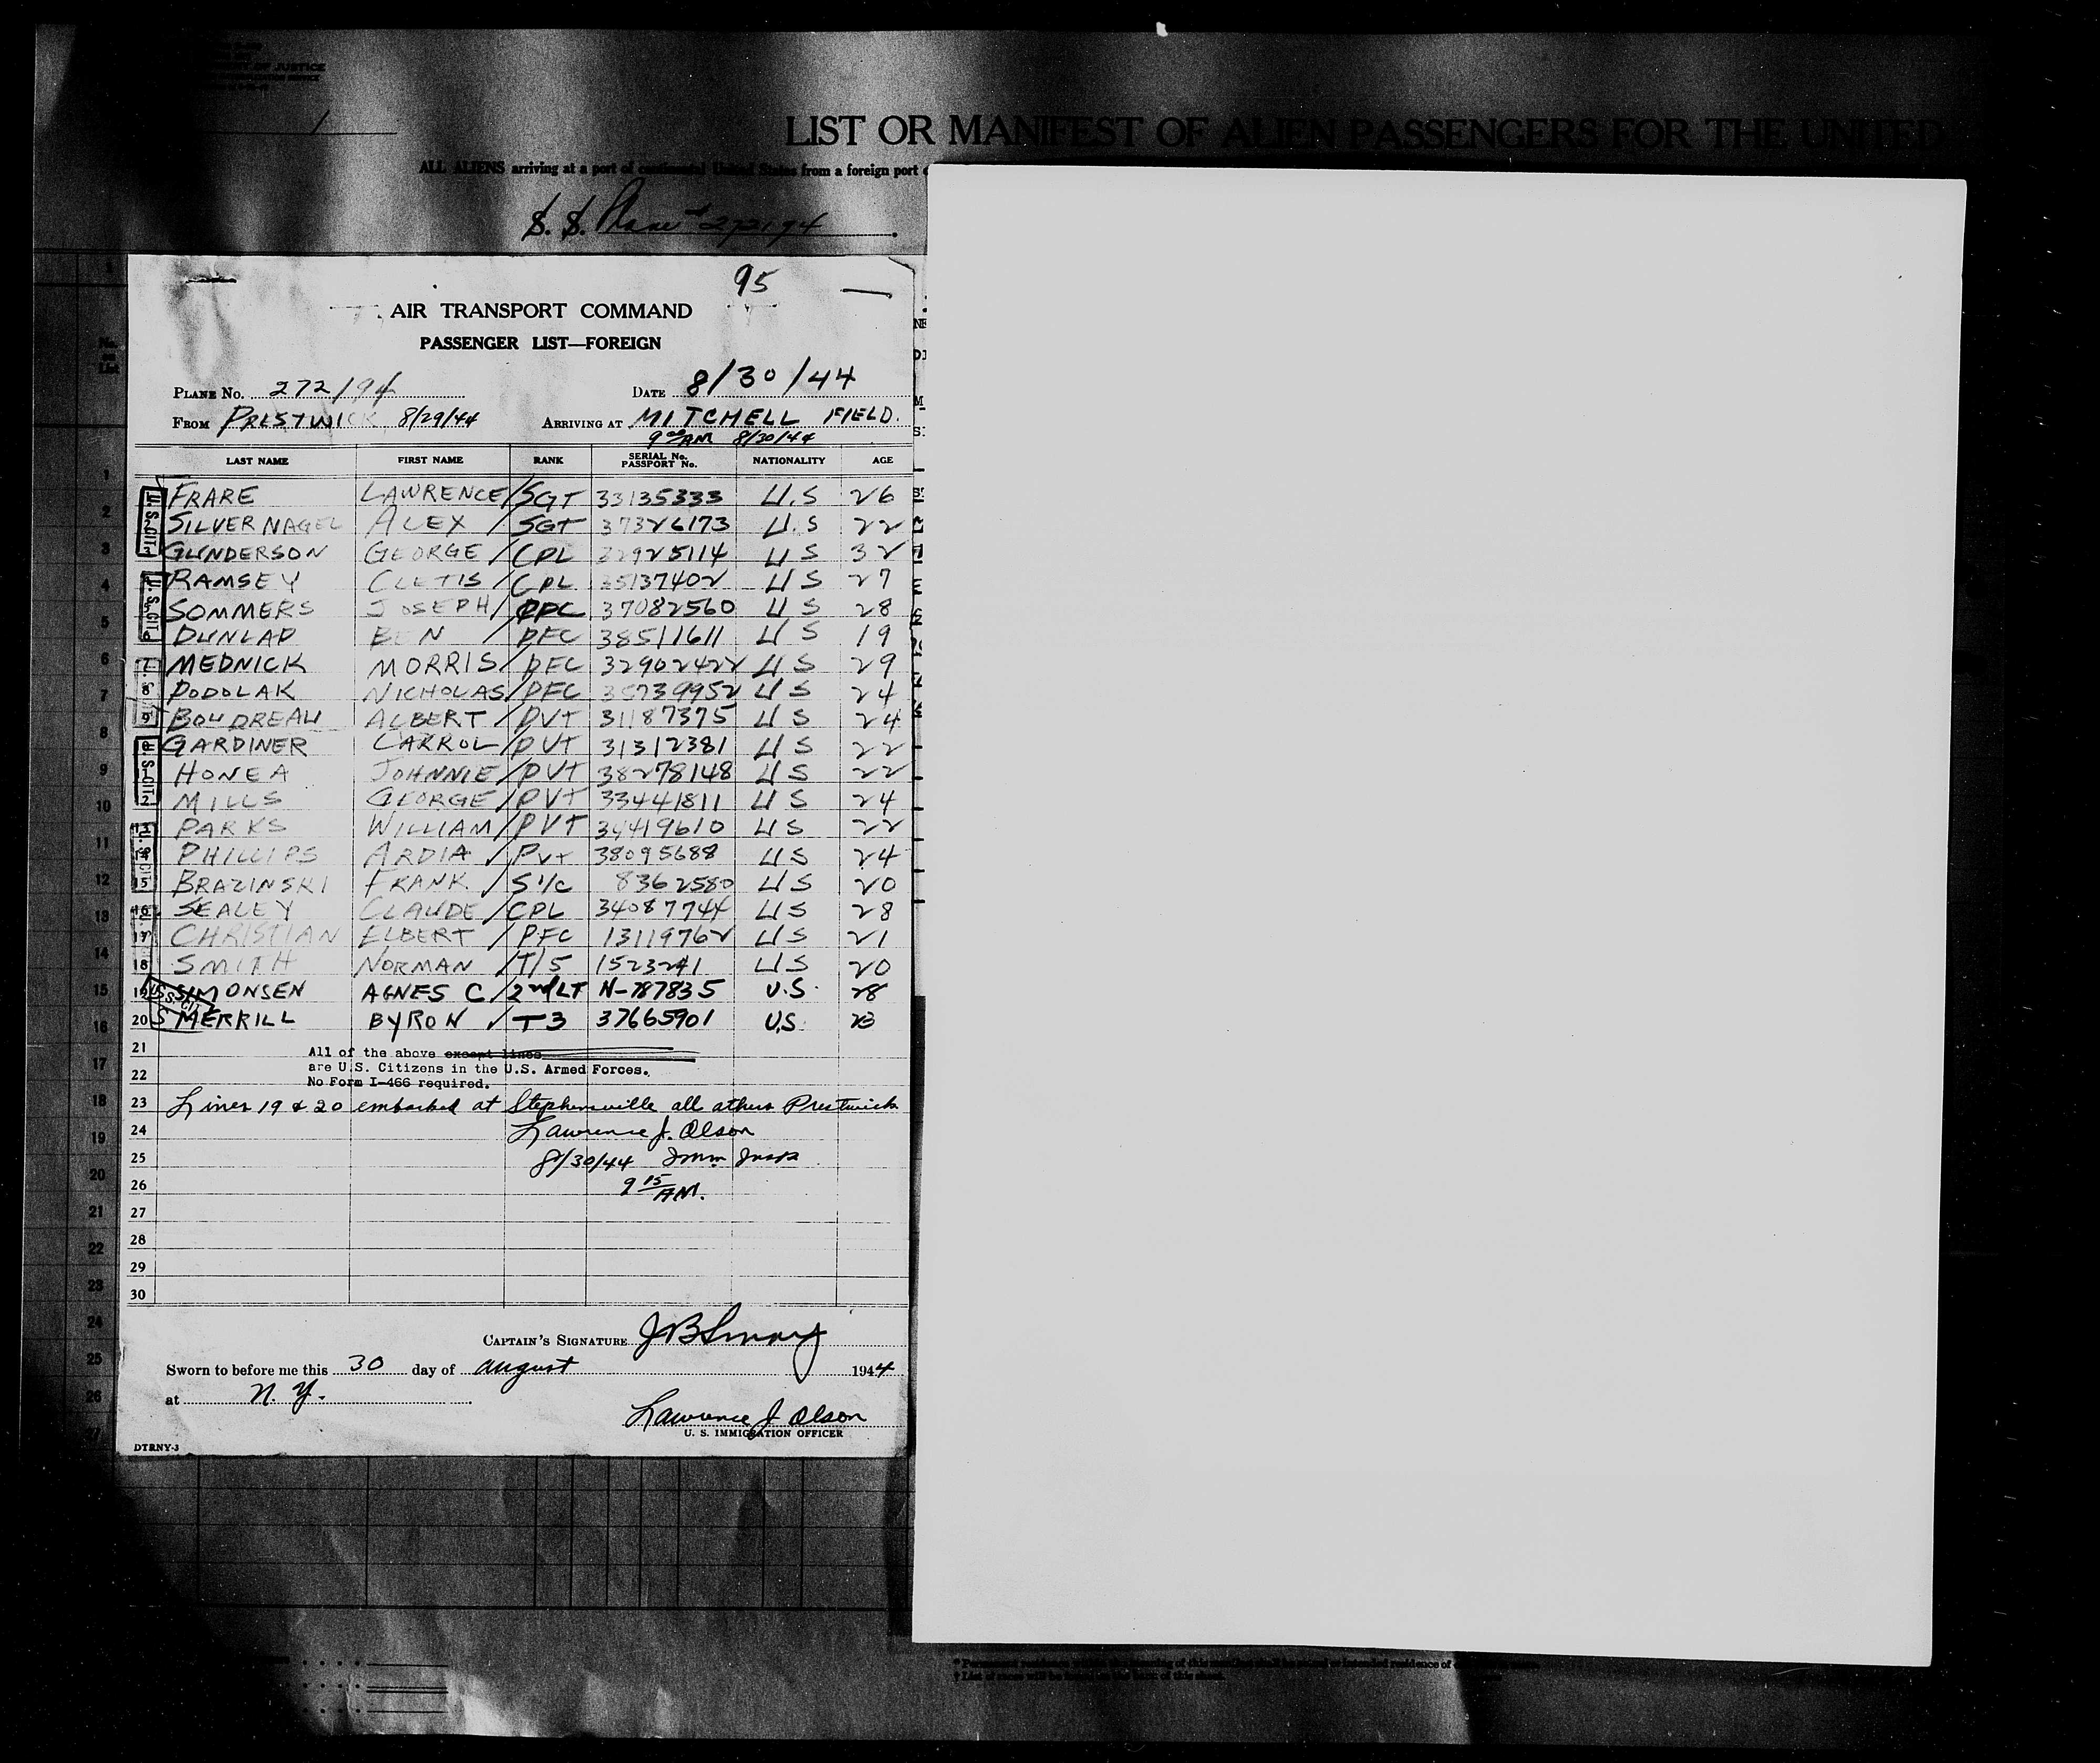 OF JUSTICE
LIST OR MANIFEST OF ALIEN PASSENGERS FOR THE UNITED
ALL ALIENS arriving at a port of continental United States from a foreign port
S. S. Plane 272194
95
AIR TRANSPORT COMMAND
PASSENGER LIST—FOREIGN
PLANE No. 272/94 DATE 8/30/44
FROM PRESTWICK 8/29/44 ARRIVING AT MITCHELL FIELD.
9 00 AM 8/30/44
LAST NAME FIRST NAME RANK SERIAL No. PASSPORT No. NATIONALITY AGE
FRARE LAWRENCE / SGT 33135333 U.S 26
SILVERNAGEL ALEX / SGT 37326173 U.S 22
GUNDERSON GEORGE / CPL 32925114 U S 32
RAMSEY CLETIS / CPL 35137402 U S 27
SOMMERS JOSEPH / PFC 37082560 U S 28
DUNLAP BEN / PFC 38511611 U S 19
7 MEDNICK MORRIS / PFC 32902422 U S 29
8 PODOLAK NICHOLAS / PFC 35739952 U S 24
9 BOUDREAU ALBERT / PVT 31187375 U S 24
GARDINER CARROL / PVT 31312381 U S 22
HONEA JOHNNIE / PVT 38278148 U S 22
MILLS GEORGE / PVT 33441811 U S 24
13 PARKS WILLIAM / PVT 34419610 U S 22
14 PHILLIPS ARDIA / Pvt 38095688 U S 24
15 BRAZINSKI FRANK / S1/c 8362580 U S 20
16 SEALEY CLAUDE / CPL 34087744 U S 28
17 CHRISTIAN ELBERT / PFC 13119762 U S 21
18 SMITH NORMAN / T/5 1523241 U S 20
19 SIMONSEN AGNES C. / 2nd LT N-787835 U.S. 28
20 MERRILL BYRON / T3 37665901 U.S. 23
U. S. CIT.
21 All of the above except lines
are U.S. Citizens in the U.S. Armed Forces.
22 No Form I-466 required.
23 Lines 19 & 20 embarked at Stephensville all others Prestwick
24 Lawrence J. Olson
25 8/30/44 Imm Insp
26 9 15 AM.
27
28
29
30
CAPTAIN'S SIGNATURE
Sworn to before me this 30 day of August 1944
at N. Y.
Lawrence J Olson
U. S. IMMIGRATION OFFICER
DTRNY-3